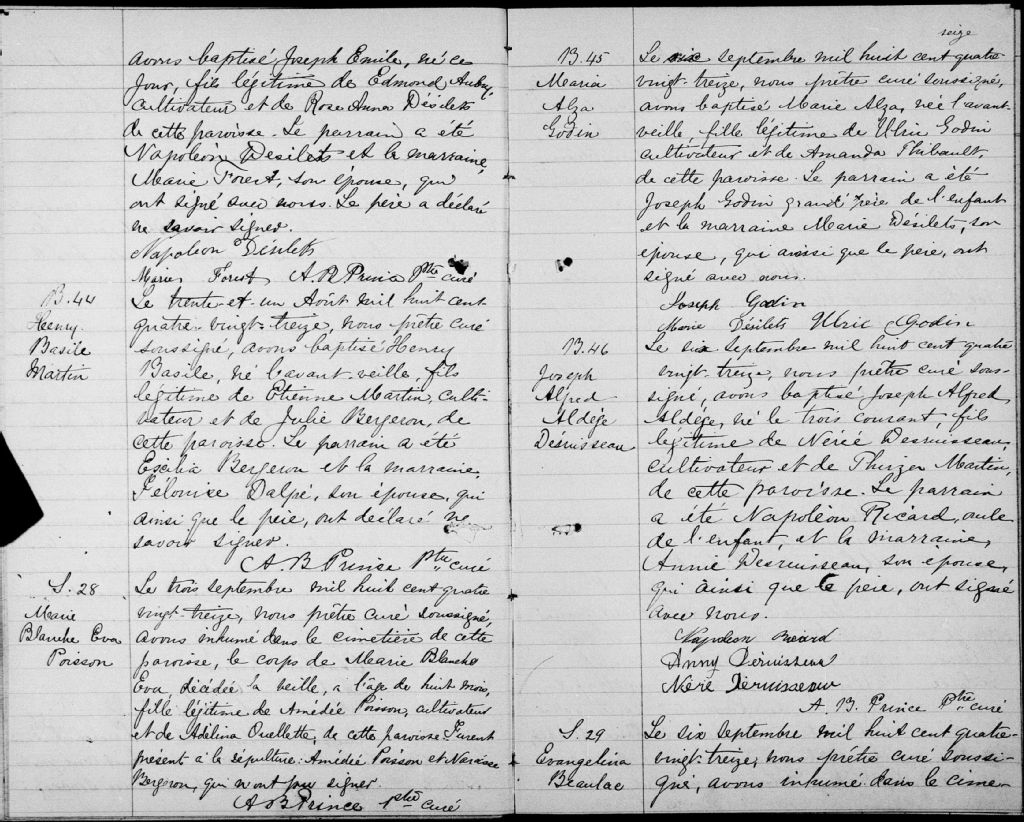 avons baptisé Joseph Emile, né ce
jour, fils légitime de Edmond Aubry,
cultivateur et de Rose Anna Désilets
de cette paroisse. Le parrain a été
Napoléon Désilets et la marraine,
Marie Forest, son épouse, qui
ont signé avec nous. Le père a déclaré
ne savoir signer.
Napoleon Désilets
Marie Forest A. B Prince Ptre curé
B. 44
Henry
Basile
Martin
Le trente-et-un Août mil huit cent
quatre-vingt-treize, nous prêtre curé
soussigné, avons baptisé Henry
Basile, né l'avant-veille, fils
légitime de Etienne Martin, culti-
vateur et de Julie Bergeron, de
cette paroisse. Le parrain a été
Bergeron et la marraine,
Dalpé, son épouse, qui
ainsi que le père, ont déclaré ne
savoir signer.
A B Prince Ptre curé
S. 28
Marie
Blanche Eva
Poisson
Le trois septembre mil huit cent quatre
vingt-treize, nous prêtre curé soussigné,
avons inhumé dans le cimetière de cette
paroisse, le corps de Marie Blanche
Eva, décédée la veille, a l'âge de huit mois,
fille légitime de Amédée Poisson, cultivateur
et de Adélina Ouellette, de cette paroisse Furent
présent à la sépulture: Amédée Poisson et Narcisse
Bergeron, qui n'ont pu signer.
A B Prince Ptre curé
B. 45
Maria
Alza
Godin
seize
Le septembre mil huit cent quatre
vingt-treize, nous prêtre curé soussigné,
avons baptisé Marie Alza, née l'avant-
veille, fille légitime de Ulric Godin
cultivateur et de Amanda Thibault,
de cette paroisse. Le parrain a été
Joseph Godin grand'père de l'enfant
et la marraine Marie Désilets, son
epouse, qui ainsi que le père, ont
signé avec nous.
Joseph Godin
Marie Désilets Ulric Godin
B. 46
Joseph
Alfred
Aldége
Desruisseau
Le six septembre mil huit cent quatre
vingt-treize, nous prêtre curé sous-
signé, avons baptisé Joseph Alfred
Aldége, né le trois courant, fils
légitime de Nérée Desruisseau,
cultivateur et de Martin,
de cette paroisse. Le parrain
a été Napoléon Ricard, oncle
de l'enfant, et la marraine,
Annie Desruisseau, son épouse,
qui ainsi que le père, ont signé
avec nous.
Napoleon Ricard
Anny Déruisseau
Néré Déruisseau
A. B. Prince Ptre curé
S. 29
Evangelina
Beaulac
Le six septembre mil huit cent quatre-
vingt-treize, nous prêtre curé soussi-
gné, avons inhumé dans le cime-